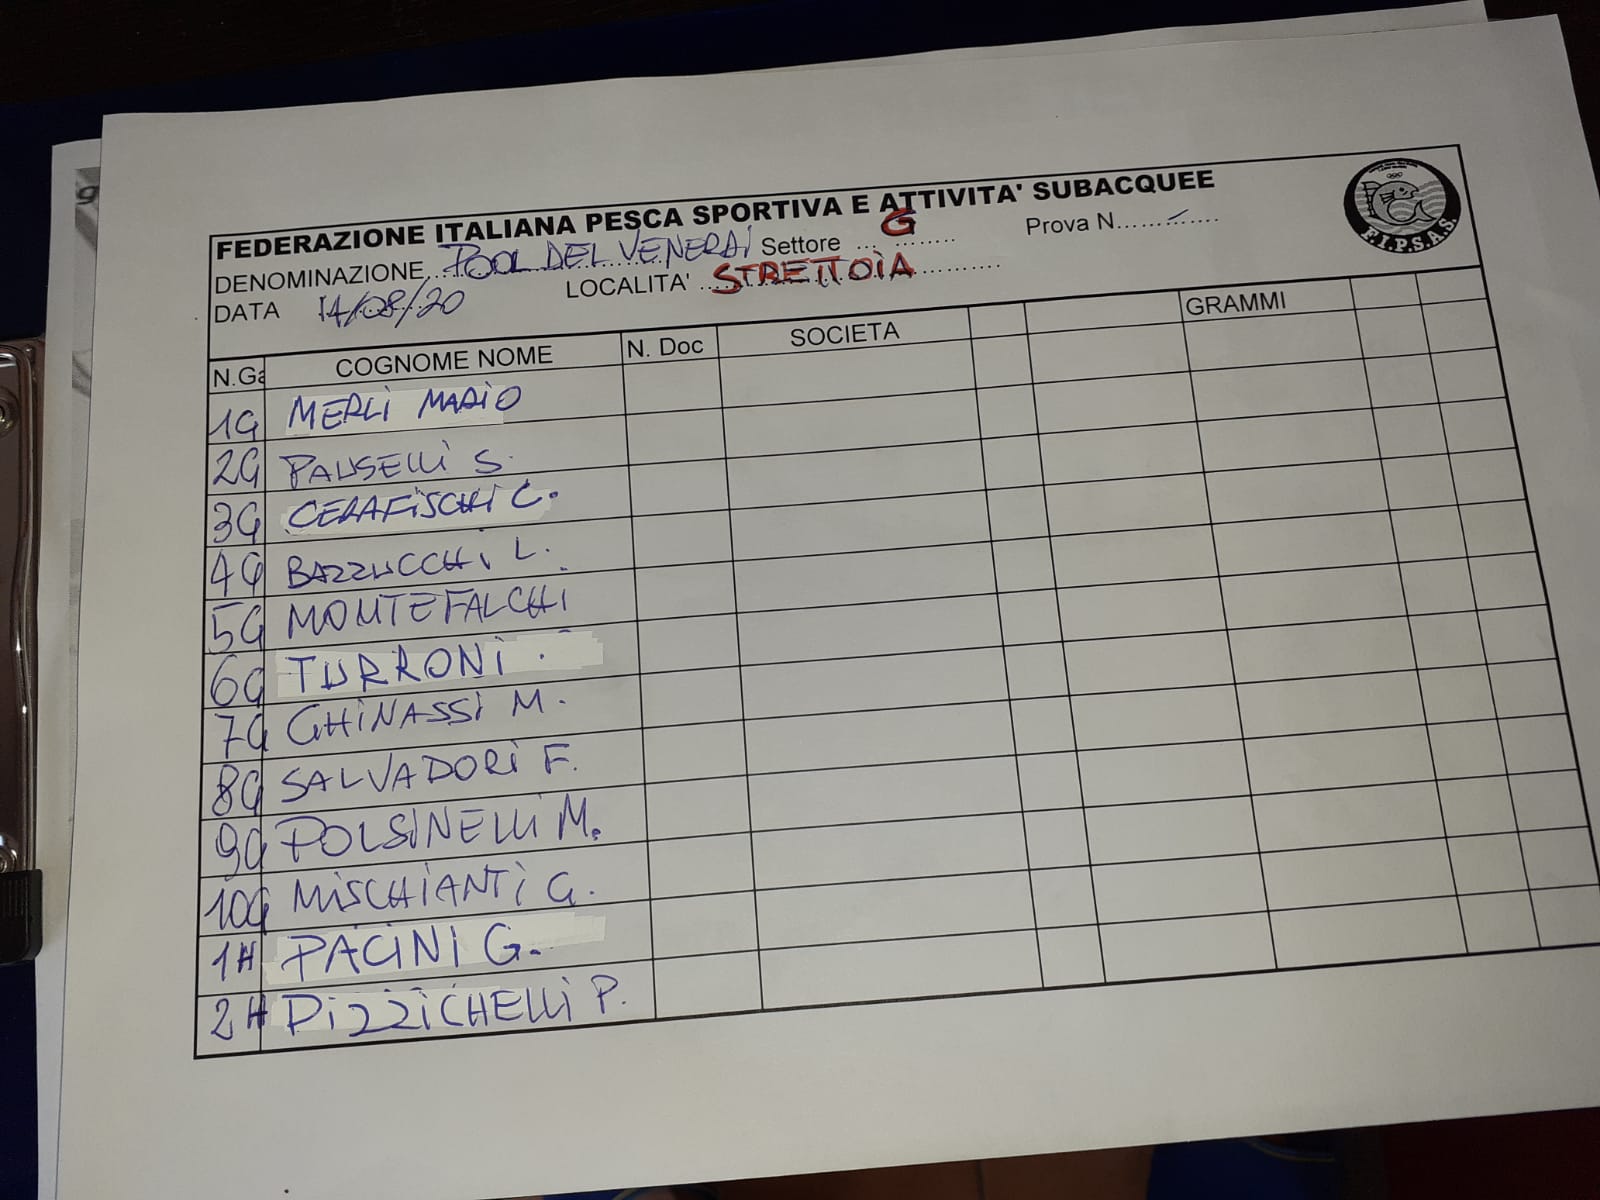 FEDERAZIONE ITALIANA PESCA SPORTIVA E ATTIVITA' SUBACQUEE
DENOMINAZIONE POOL DEL VENERDI Settore G Prova N.
DATA 14/08/20 LOCALITA' STRETTOIA
F.I.P.S.A.S.
N.Ga COGNOME NOME N. Doc SOCIETA GRAMMI
1G MERLI MARIO
2G PAUSELLI S.
3G CERAFISCHI C.
4G BAZZUCCHI L.
5G MONTEFALCHI
6G TURRONI
7G GHINASSI M.
8G SALVADORI F.
9G POLSINELLI M.
10G MISCHIANTI G.
1H PACINI G.
2H PIZZICHELLI P.